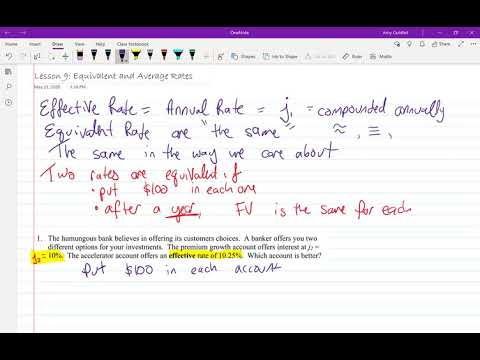 OneNote
Amy Goldlist
File Home Insert Draw View Help Class Notebook
Shapes
Ink to Shape
Ink to Text
Math
Lesson 9: Equivalent and Average Rates
May 21, 2020
Effective Rate = Annual Rate = j₁ = compounded annually
Equivalent Rate are "the same" ≈, ≡,
The same in the way we care about
Two rates are equivalent if
• put $100 in each one
• after a year, FV is the same for each
1. The humungous bank believes in offering its customers choices. A banker offers you two
different options for your investments. The premium growth account offers interest at j₂ =
j₂ = 10%. The accelerator account offers an effective rate of 10.25%. Which account is better?
Put $100 in each account